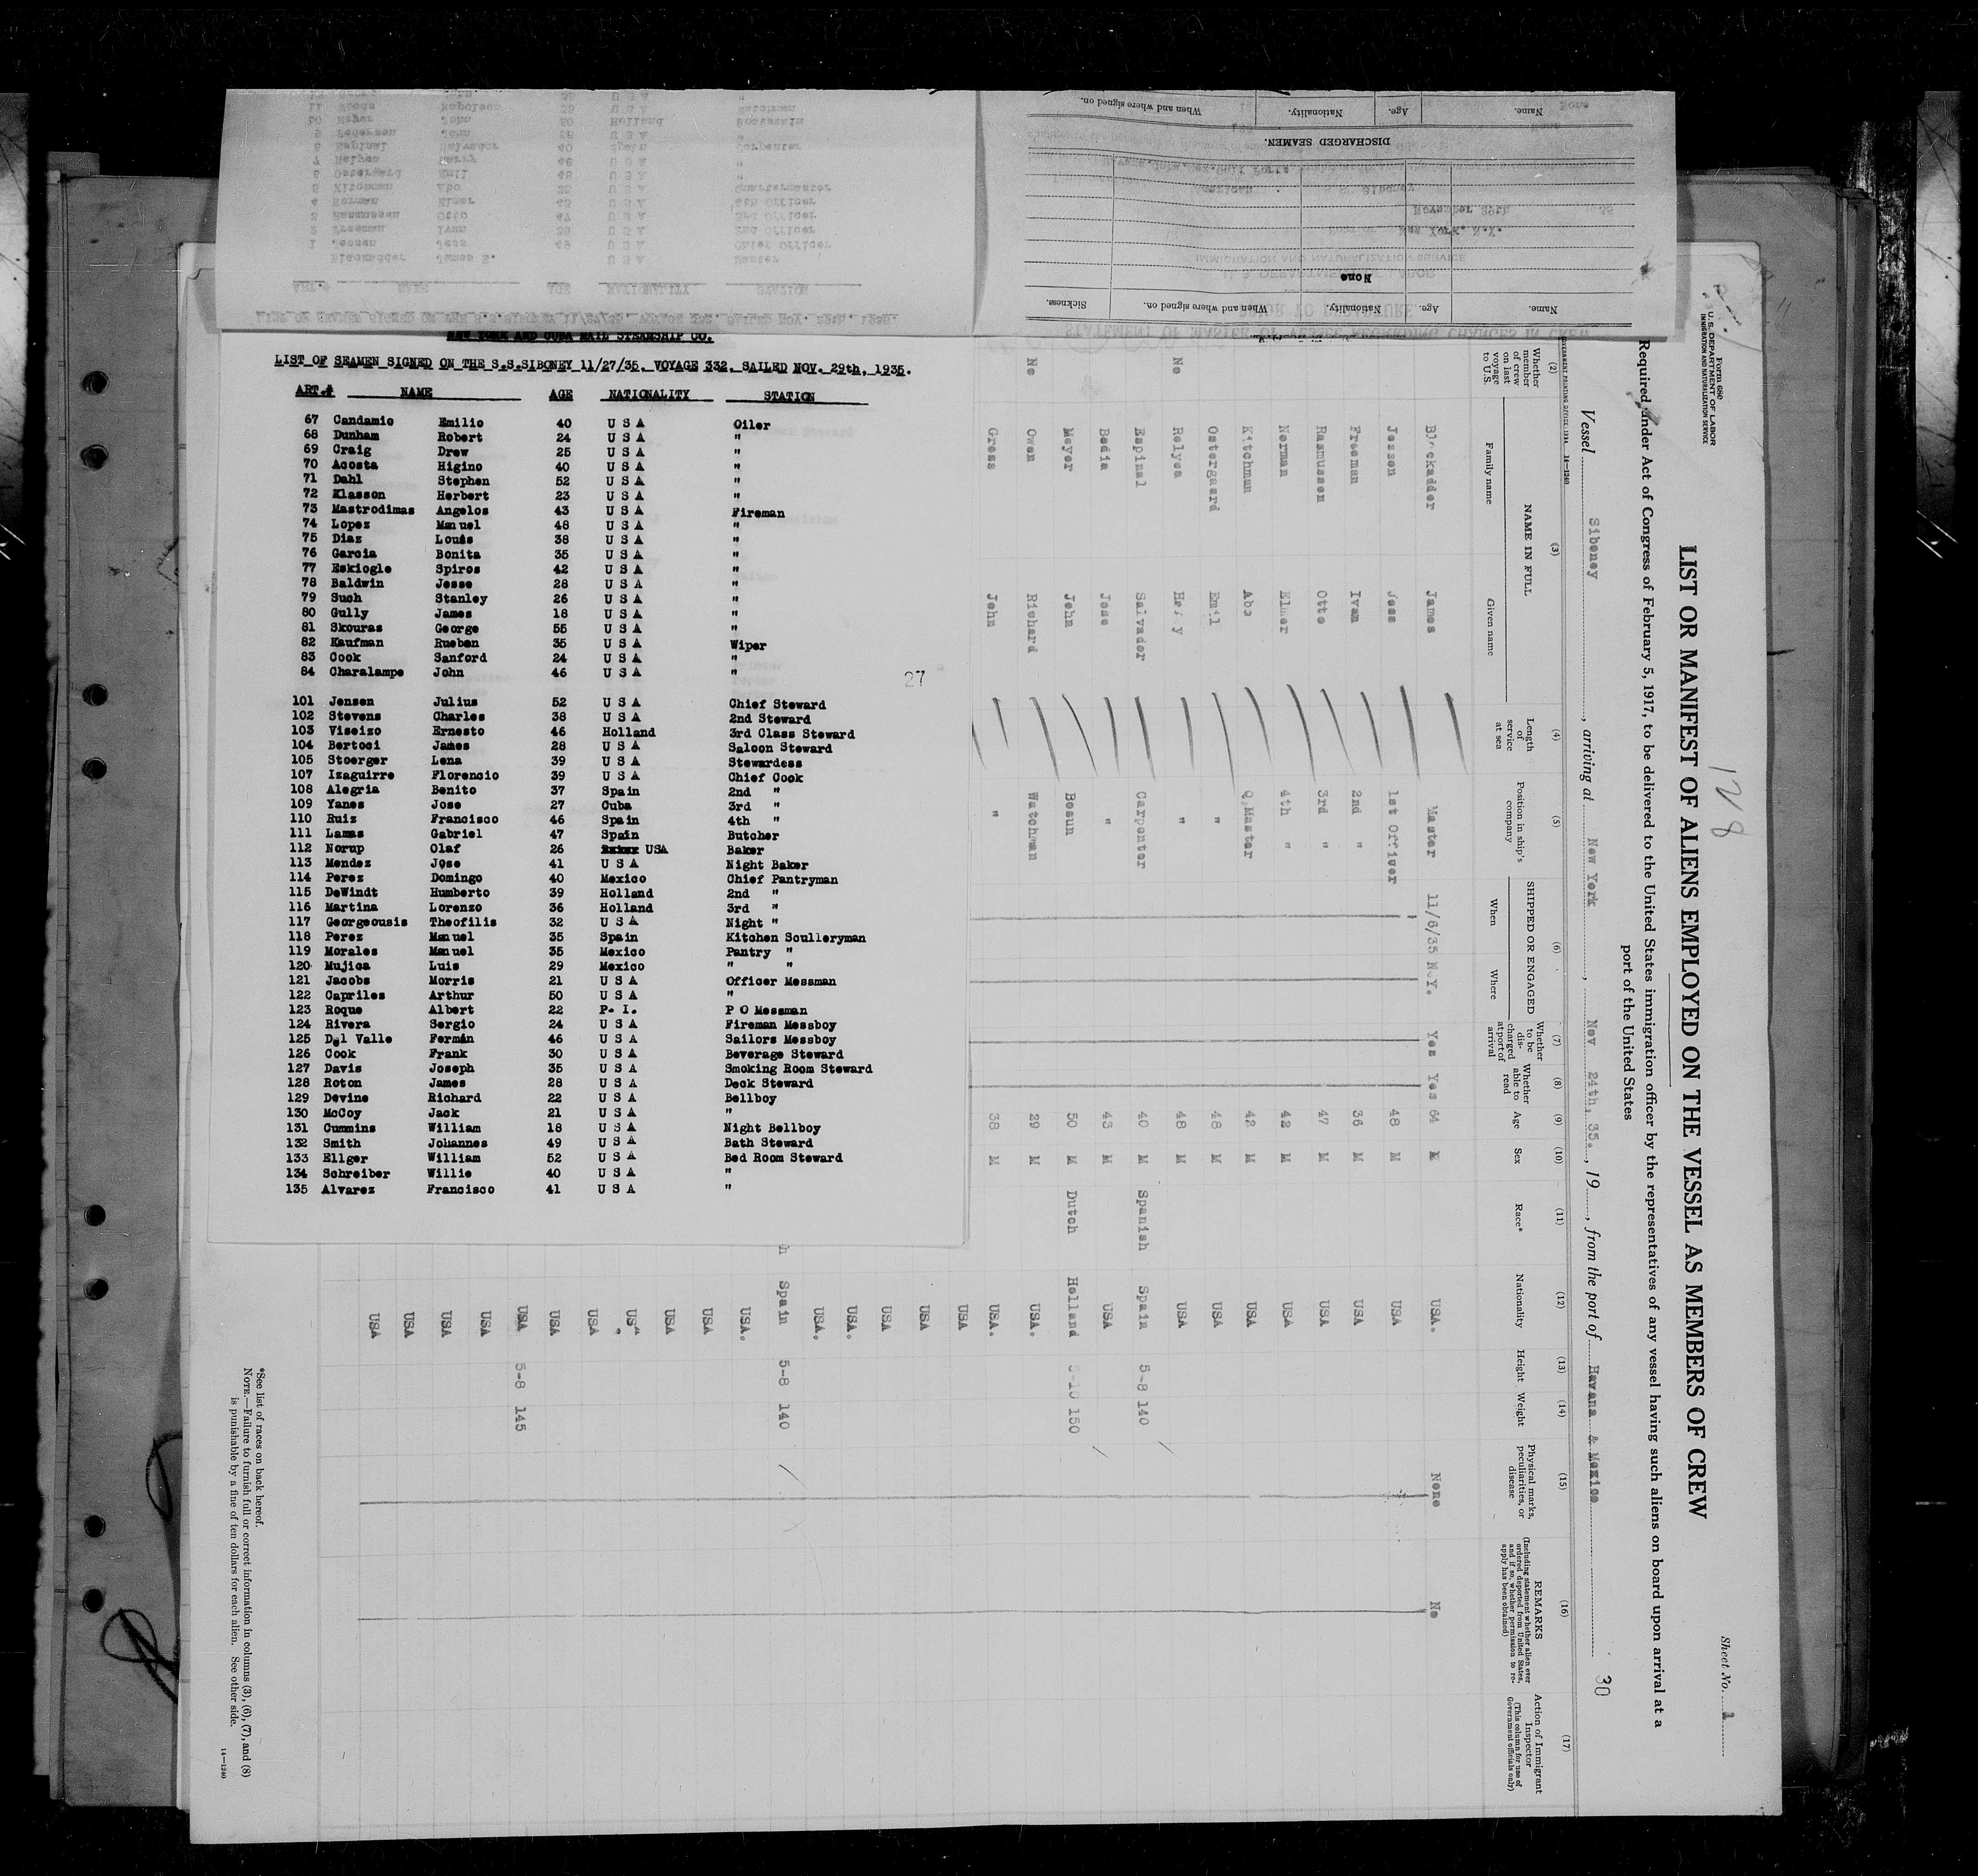 NEW YORK AND CUBA MAIL STEAMSHIP CO.
LIST OF SEAMEN SIGNED ON THE S.S.SIBONEY 11/27/35. VOYAGE 332. SAILED NOV. 29th, 1935.
ART.# NAME AGE NATIONALITY STATION
67 Candamio Emilio 40 U S A Oiler
68 Dunham Robert 24 U S A "
69 Craig Drew 25 U S A "
70 Acosta Higino 40 U S A "
71 Dahl Stephen 52 U S A "
72 Klasson Herbert 23 U S A "
73 Mastrodimas Angelos 43 U S A Fireman
74 Lopez Manuel 48 U S A "
75 Diaz Louis 38 U S A "
76 Garcia Bonita 35 U S A "
77 Eskiogle Spiros 42 U S A "
78 Baldwin Jesse 28 U S A "
79 Such Stanley 26 U S A "
80 Gully James 18 U S A "
81 Skouras George 55 U S A "
82 Kaufman Rueben 35 U S A Wiper
83 Cook Sanford 24 U S A "
84 Charalampe John 46 U S A "
27
101 Jensen Julius 52 U S A Chief Steward
102 Stevens Charles 38 U S A 2nd Steward
103 Viseizo Ernesto 46 Holland 3rd Class Steward
104 Bertoci James 28 U S A Saloon Steward
105 Stoerger Lena 39 U S A Stewardess
107 Izaguirre Florencio 39 U S A Chief Cook
108 Alegria Benito 37 Spain 2nd "
109 Yanes Jose 27 Cuba 3rd "
110 Ruiz Francisco 46 Spain 4th "
111 Lamas Gabriel 47 Spain Butcher
112 Norup Olaf 26 USA Baker
113 Mendez Jose 41 U S A Night Baker
114 Perez Domingo 40 Mexico Chief Pantryman
115 DeWindt Humberto 39 Holland 2nd "
116 Martina Lorenzo 36 Holland 3rd "
117 Georgeousis Theofilis 32 U S A Night "
118 Perez Manuel 35 Spain Kitchen Sculleryman
119 Morales Manuel 35 Mexico Pantry "
120 Mujica Luis 29 Mexico " "
121 Jacobs Morris 21 U S A Officer Messman
122 Capriles Arthur 50 U S A "
123 Roque Albert 22 P. I. P O Messman
124 Rivera Sergio 24 U S A Fireman Messboy
125 Del Valle Fermán 46 U S A Sailors Messboy
126 Cook Frank 30 U S A Beverage Steward
127 Davis Joseph 35 U S A Smoking Room Steward
128 Roton James 28 U S A Deck Steward
129 Devine Richard 22 U S A Bellboy
130 McCoy Jack 21 U S A "
131 Cummins William 18 U S A Night Bellboy
132 Smith Johannes 49 U S A Bath Steward
133 Ellger William 52 U S A Bed Room Steward
134 Schreiber Willie 40 U S A "
135 Alvarez Francisco 41 U S A "
Name. Age. Nationality. When and where signed on.
DISCHARGED SEAMEN.
None
Name. Age. Nationality. When and where signed on. Sickness.
Form 680
U. S. DEPARTMENT OF LABOR
IMMIGRATION AND NATURALIZATION SERVICE
128
Sheet No. 1
LIST OR MANIFEST OF ALIENS EMPLOYED ON THE VESSEL AS MEMBERS OF CREW
Required under Act of Congress of February 5, 1917, to be delivered to the United States immigration officer by the representatives of any vessel having such aliens on board upon arrival at a
port of the United States
Vessel Siboney, arriving at New York, Nov 24th, 35., 19, from the port of Havana & Mexico
30
(2) (3) (4) (5) (6) (7) (8) (9) (10) (11) (12) (13) (14) (15) (16) (17)
Whether member of crew on last voyage to U.S.
NAME IN FULL
Family name Given name
Length of service at sea
Position in ship's company
SHIPPED OR ENGAGED
When Where
Whether to be discharged at port of arrival
Whether able to read
Age Sex Race* Nationality Height Weight
Physical marks, peculiarities, or disease
REMARKS
(Including statement whether alien ever ordered deported from United States, and if so, whether permission to reapply has been obtained)
Action of Immigrant Inspector
(This column for use of Government officials only)
Blackadder James Master 11/6/35 N.Y. Yes Yes 64 M USA. None No
Jessen Jess 1st Officer 48 M USA
Freeman Ivan 2nd " 36 M USA
Rasmussen Otto 3rd " 47 M USA
Norman Elmer 4th " 42 M USA
Kitchman Abe Q.Master 42 M USA
Ostergaard Emil " 48 M USA
No Relyea Harry " 48 M USA
Espinal Salvador Carpenter 40 M Spanish Spain 5-8 140
Bedia Jose " 43 M USA
Meyer John Bosun 50 M Dutch Holland 5-10 150
No Owen Richard Watchman 29 M USA.
Gross John " 38 M USA.
USA
USA
USA
USA.
USA.
Spain 5-8 140
USA.
USA
USA
USA
USA
USA 5-8 145
USA
USA
USA
USA
*See list of races on back hereof.
NOTE.—Failure to furnish full or correct information in columns (3), (6), (7), and (8)
is punishable by a fine of ten dollars for each alien. See other side.
14—1240